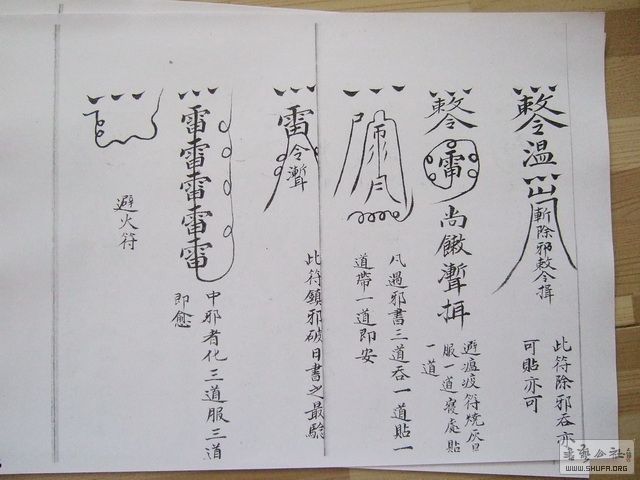 敕令溫
斬除邪敕令揖
此符除邪吞亦
可貼亦可
敕令
雷
尚
避瘟疫符燒灰日
服一道寢處貼
一道
凡遇邪書三道吞一道貼一
道帶一道即安
雷
令
此符鎮邪破日書之最驗
雷雷雷雷雷
中邪者化三道服三道
即愈
避火符
WWW.SHUFA.ORG